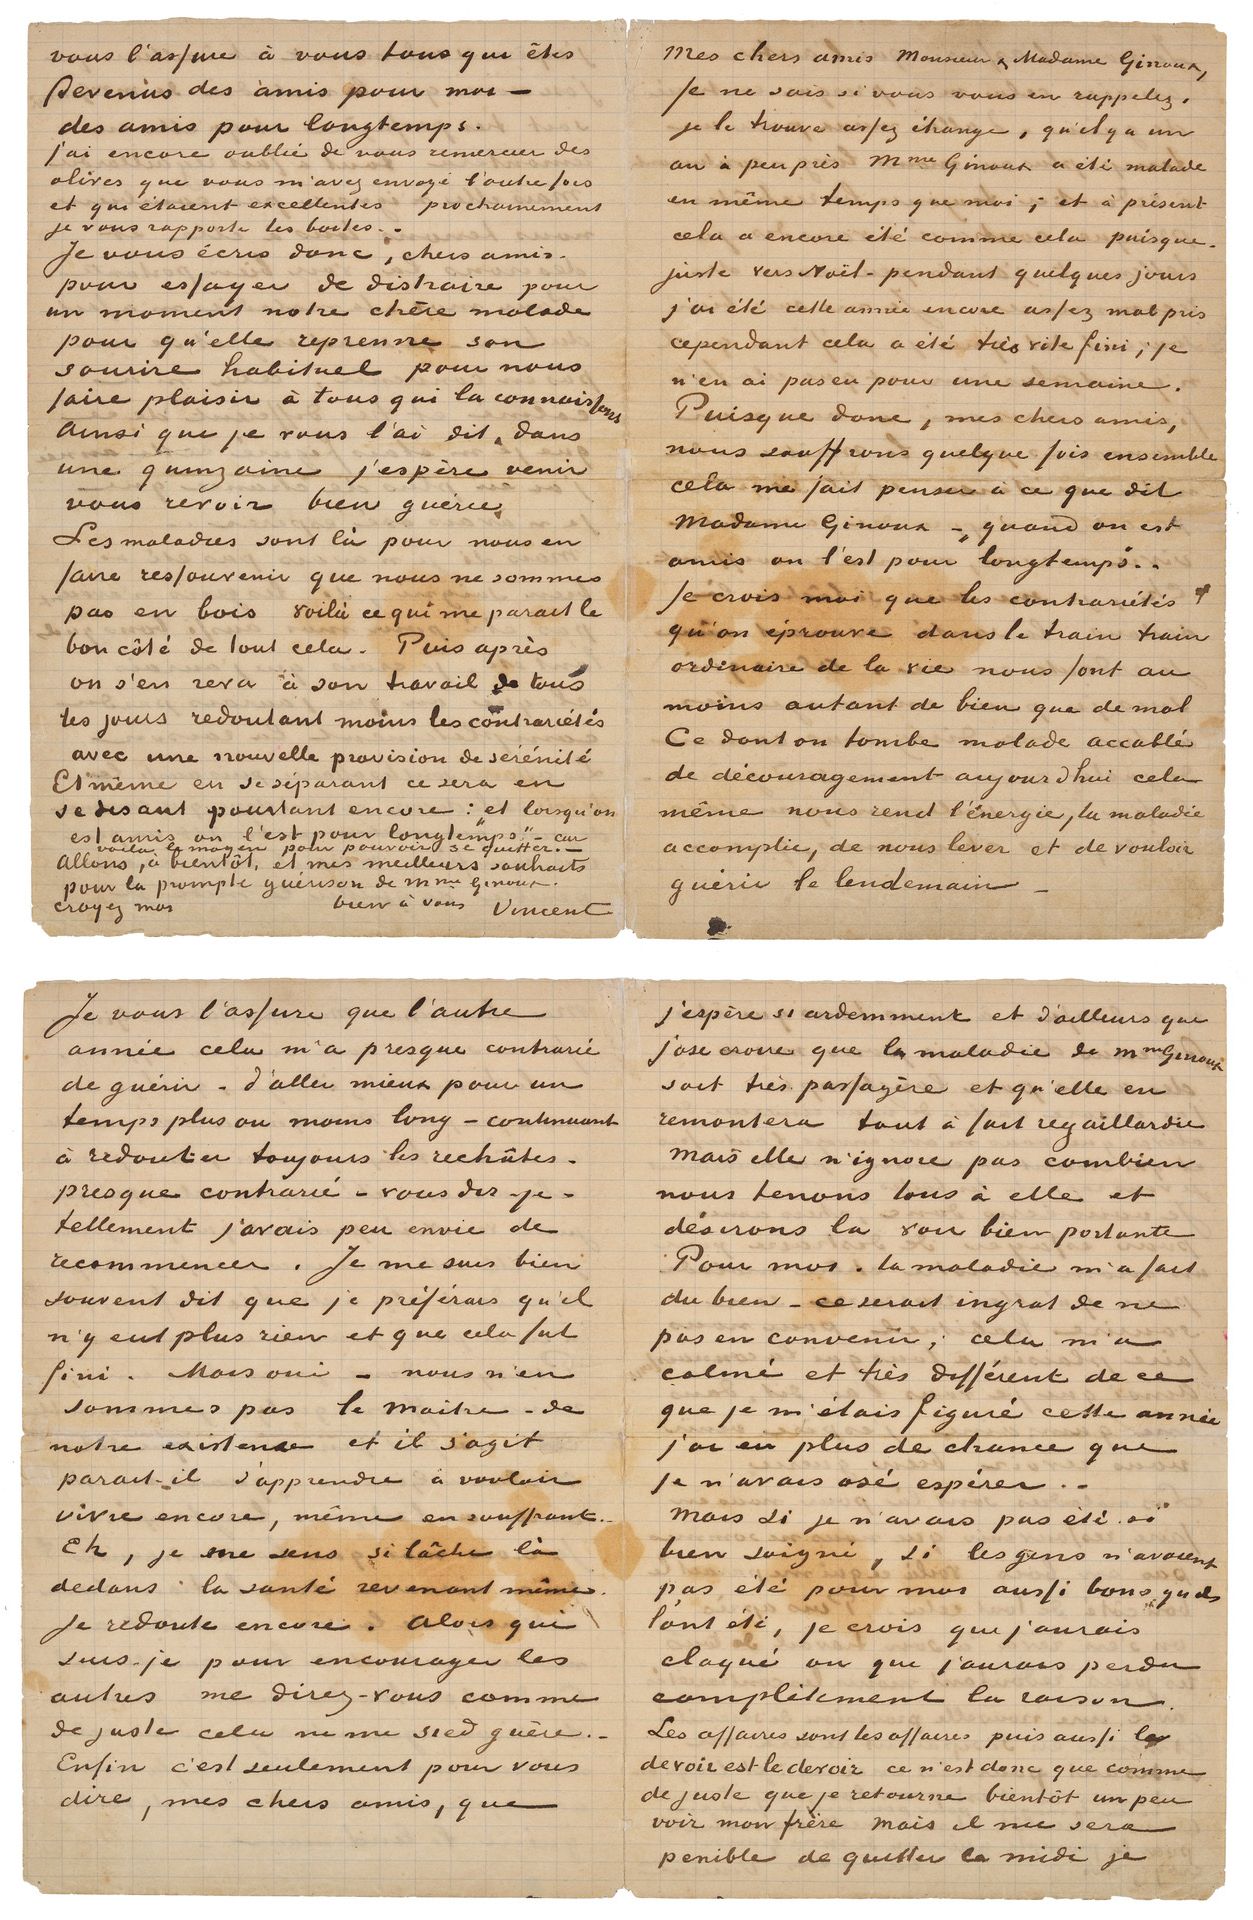 Mes chers amis Monsieur & Madame Ginoux,
Je ne sais si vous vous en rappelez.
je le trouve assez étrange, qu'il y a un
an à peu près Mme Ginoux a été malade
en même temps que moi; et à présent
cela a encore été comme cela puisque.
juste vers Noël - pendant quelques jours
j'ai été cette année encore assez mal pris
cependant cela a été très vite fini; je
n'en ai pas eu pour une semaine.
Puisque donc, mes chers amis,
nous souffrons quelque fois ensemble
cela me fait penser à ce que dit
Madame Ginoux - „quand on est
amis on l'est pour longtemps"..
Je crois moi que les contrariétés
qu'on éprouve dans le train train
ordinaire de la vie nous font au
moins autant de bien que de mal
Ce dont on tombe malade accablé
de découragement aujourd'hui cela
même nous rend l'énergie, la maladie
accomplie, de nous lever et de vouloir
guérir le lendemain -
Je vous l'assure que l'autre
année cela m'a presque contrarié
de guérir - d'aller mieux pour un
temps plus ou moins long - continuant
à redouter toujours les rechûtes -
presque contrarié - vous dis-je -
tellement j'avais peu envie de
recommencer. Je me suis bien
souvent dit que je préférais qu'il
n'y eut plus rien et que cela fut
fini. Mais oui - nous n'en
sommes pas le maitre - de
notre existence et il s'agit
parait-il d'apprendre à vouloir
vivre encore, même en souffrant..
Eh, je me sens si lâche là
dedans la santé revenant même
je redoute encore. Alors qui
suis-je pour encourager les
autres me direz-vous comme
de juste cela ne me sied guère. -
Enfin c'est seulement pour vous
dire, mes chers amis, que
j'espère si ardemment et d'ailleurs que
j'ose croire que la maladie de Mme Ginoux
soit très passagère et qu'elle en
remontera tout à fait regaillardie
Mais elle n'ignore pas combien
nous tenons tous à elle et
désirons la voir bien portante
Pour moi. la maladie m'a fait
du bien - ce serait ingrat de ne
pas en convenir; cela m'a
calmé et très différent de ce
que je m'étais figuré cette année
j'ai eu plus de chance que
je n'avais osé espérer..
Mais si je n'avais pas été si
bien soigné, si les gens n'avaient
pas été pour moi aussi bons qu'ils
l'ont été, je crois que j'aurais
claqué ou que j'aurais perdu
complètement la raison.
Les affaires sont les affaires puis aussi le
devoir est le devoir ce n'est donc que comme
de juste que je retourne bientôt un peu
voir mon frère Mais il me sera
penible de quitter le midi je
vous l'assure à vous tous qui êtes
devenus des amis pour moi -
des amis pour longtemps.
j'ai encore oublié de vous remercier des
olives que vous m'avez envoyé l'autre fois
et qui étaient excellentes prochainement
je vous rapporte les boites..
Je vous écris donc, chers amis.
pour essayer de distraire pour
un moment notre chère malade
pour qu'elle reprenne son
sourire habituel pour nous
faire plaisir à tous qui la connaissons
Ainsi que je vous l'ai dit, dans
une quinzaine j'espère venir
vous revoir bien guérie.
Les maladies sont là pour nous en
faire ressouvenir que nous ne sommes
pas en bois voilà ce qui me parait le
bon côté de tout cela. Puis après
on s'en reva à son travail de tous
les jours redoutant moins les contrariétés
avec une nouvelle provision de sérénité
Et même en se séparant ce sera en
se disant pourtant encore: „et lorsqu'on
est amis on l'est pour longtemps" - car
voilà le moyen pour pouvoir se quitter. -
Allons, à bientôt, et mes meilleurs souhaits
pour la prompte guérison de Mme Ginoux.
croyez moi bien à vous Vincent